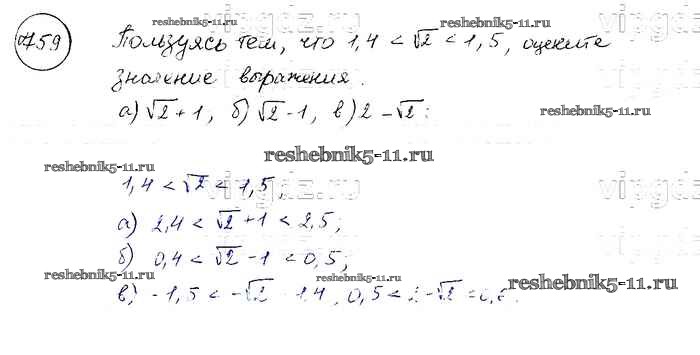 759 Пользуясь тем, что 1,4 < √2 < 1,5, оцените
reshebnik5-11.ru
значение выражения.
а) √2 + 1, б) √2 - 1, в) 2 - √2:
reshebnik5-11.ru
reshebnik5-11.ru
vipgdz.ru
reshebnik5-11.ru
1,4 < √2 < 1,5;
vipgdz.ru
reshebnik5-11.ru
а) 2,4 < √2 + 1 < 2,5;
б) 0,4 < √2 - 1 < 0,5;
reshebnik5-11.ru
reshebnik5-11.ru
reshebnik5-11.ru
в) -1,5 < -√2 1,4, 0,5 < 2 - √2